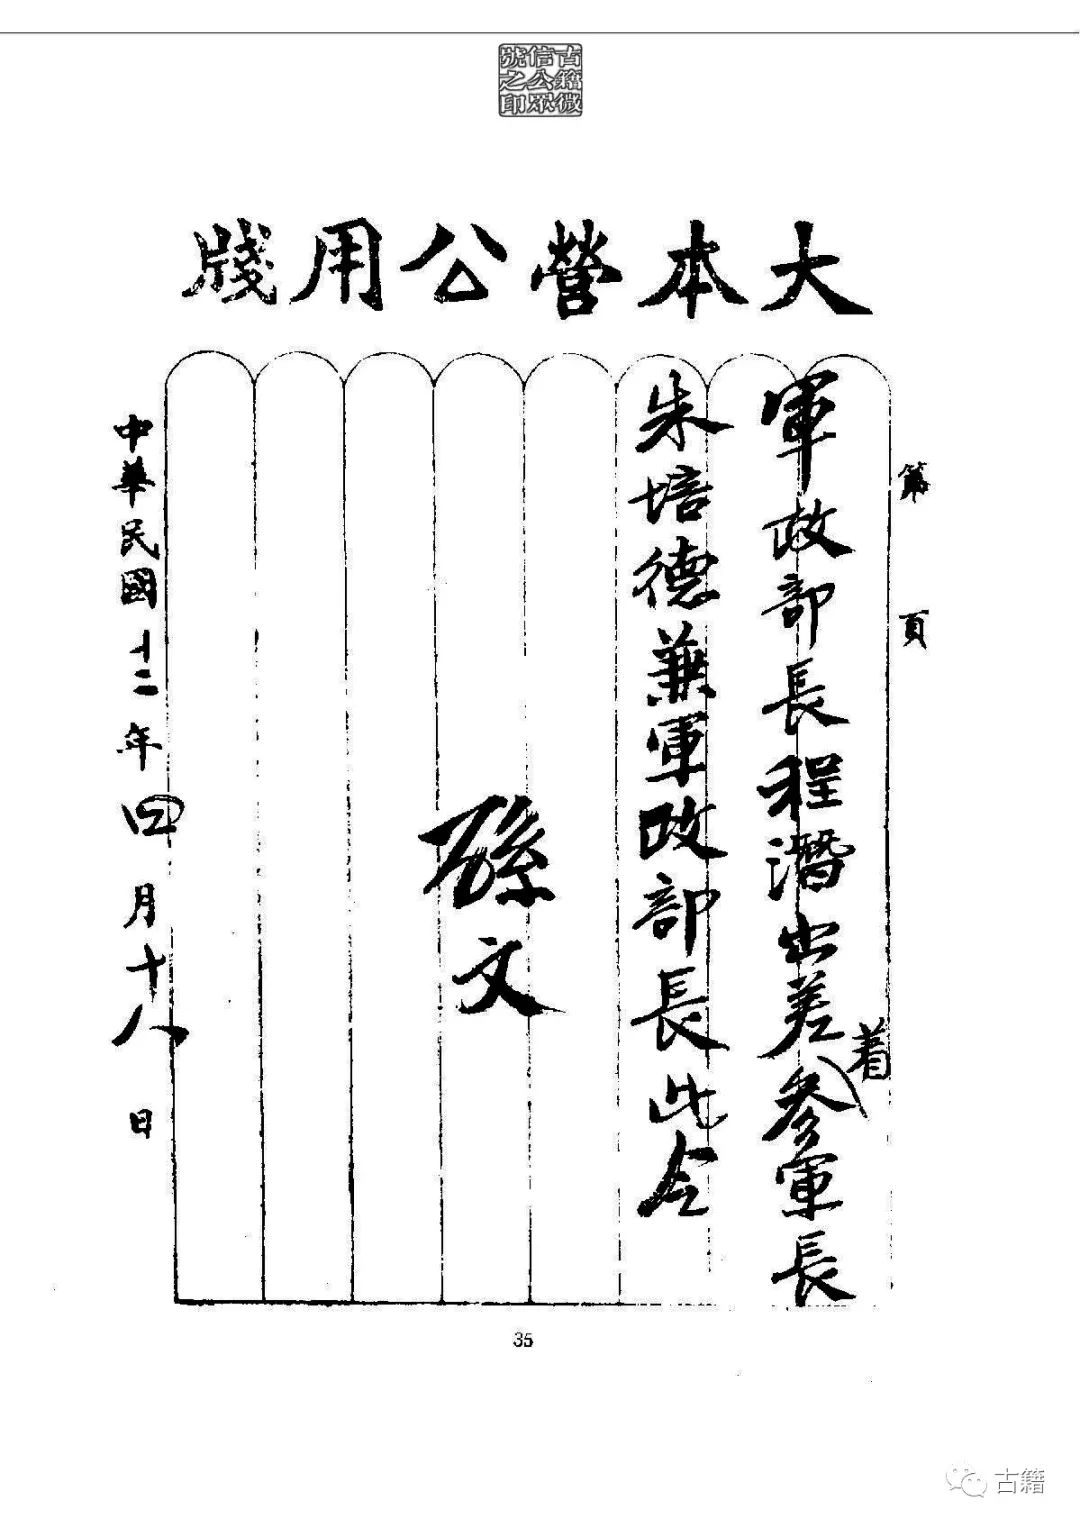 古籍微
信公眾
號之印
大本營公用牋
第 頁
軍政部長程潛出差着參軍長
朱培德兼軍政部長此令
孫文
中華民國十二年四月十八日
35
古籍